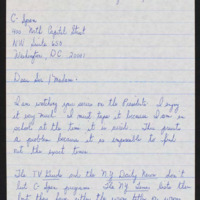 C-Span
400 North Capitol Street
NW Suite 650
Washington, DC 20001
Dear Sir/Madam:
I am watching your series on the Presidents. I enjoy
it very much. I must tape it because I am in
school at the time it is aired. This presents
a problem because it is impossible to find
out the exact times.
The TV Guide and the NY Daily News don't
list C-Span programs. The NY Times lists them
but they have either the wrong titles or wrong